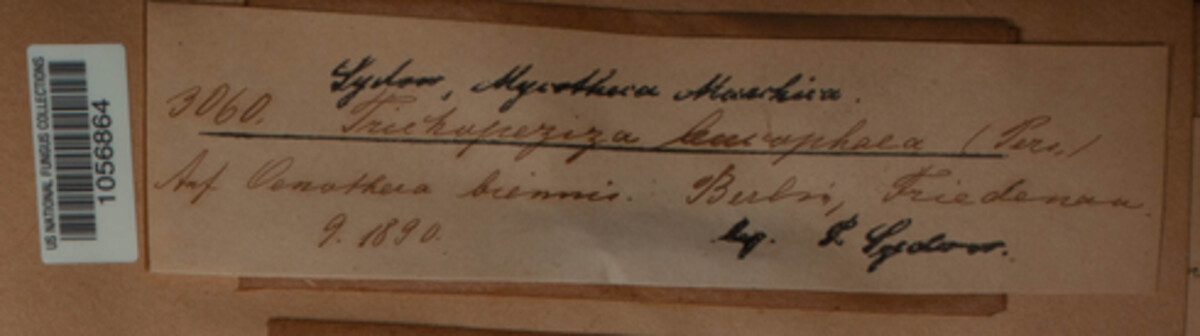 US NATIONAL FUNGUS COLLECTIONS
1056864
Sydow, Mycotheca Marchica.
3060. Trichopeziza leucophaea (Pers.)
Auf Oenothera biennis. Berlin, Friedenau.
9. 1890.
leg. P. Sydow.